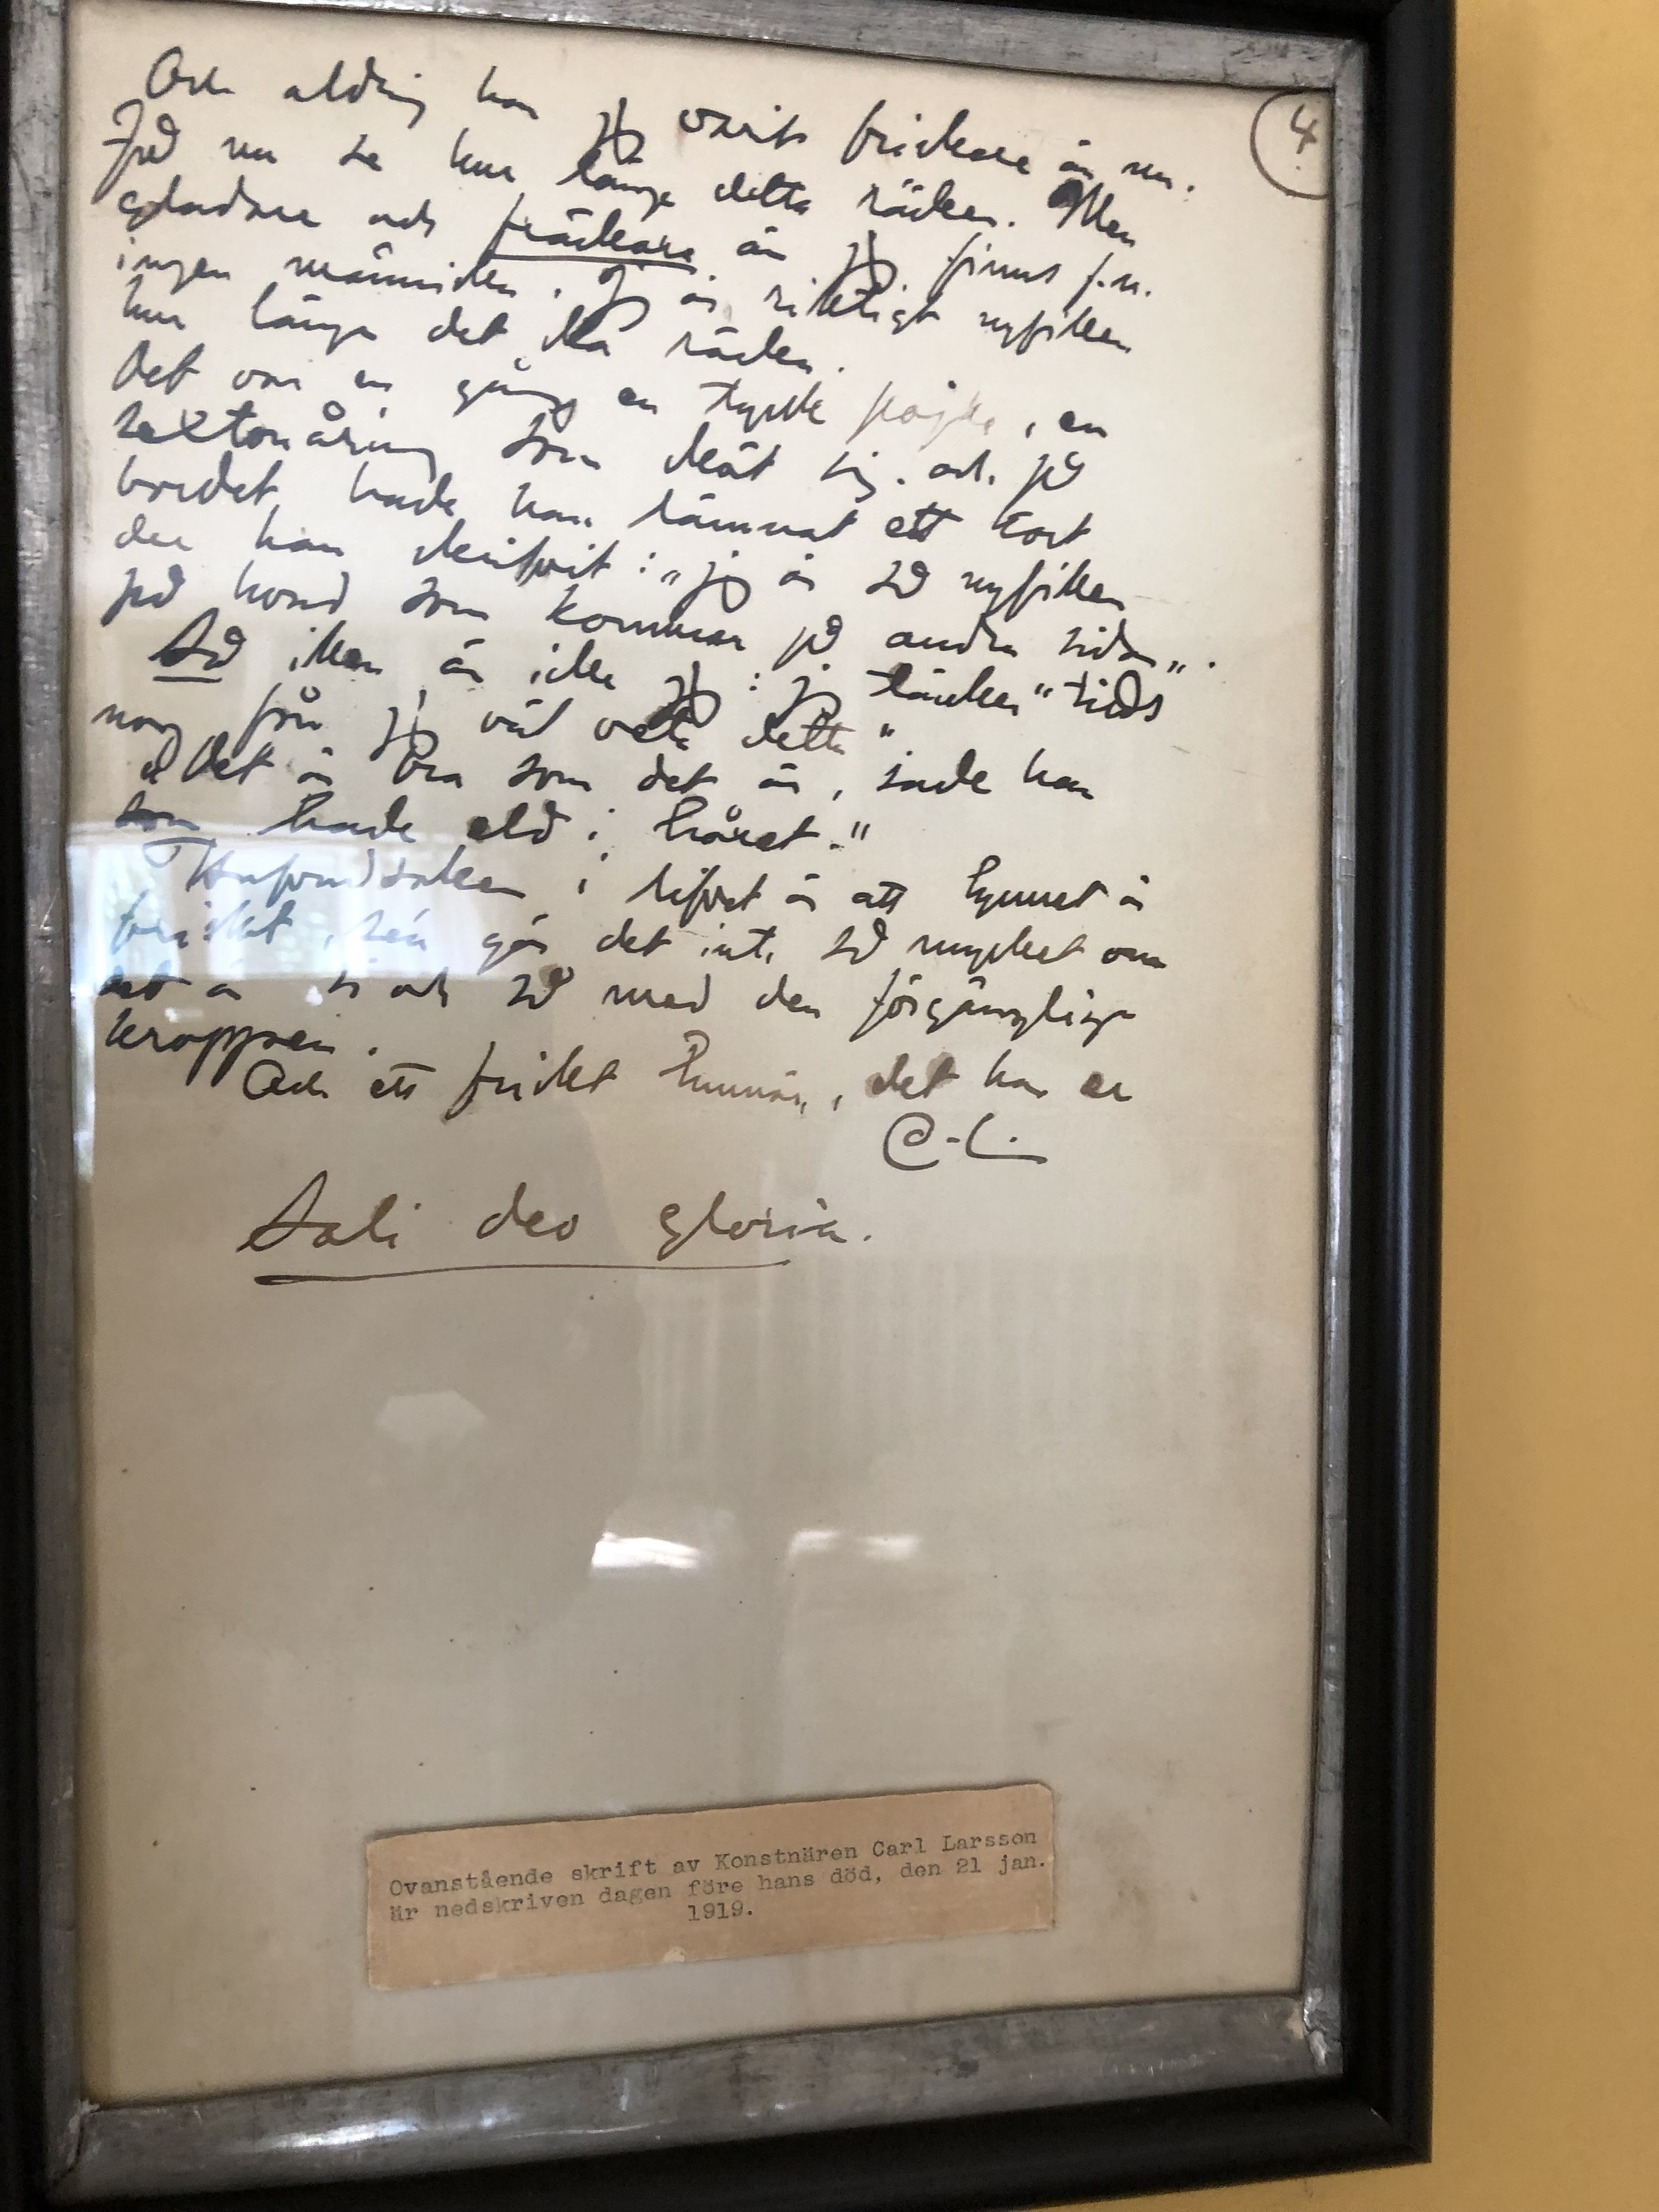 4
Och aldrig har jag varit friskare än nu.
Få nu se hur länge detta räcker. Men
gladare och fräckare än jag finns f.n.
ingen människa. Jag är riktigt nyfiken
hur länge det ska räcka.
Det var en gång en tysk pojke, en
sextonåring som sköt sig. och på
bordet hade han lämnat ett kort
der han skrifvit: „jag är så nyfiken
på hvad som kommer på andra sidan„.
Så icken är icke jag: jag tänker "tids
nog får jag väl veta detta".
„Det är bra som det är, sade han
som hade eld i håret."
Hufvudsaken i lifvet är att lynnet är
friskt, sén gör det inte så mycket om
det är si och så med den förgänglige
kroppen.
Och ett friskt humör, det har er
C-L.
Soli deo gloria.
Ovanstående skrift av Konstnären Carl Larsson
är nedskriven dagen före hans död, den 21 jan.
1919.